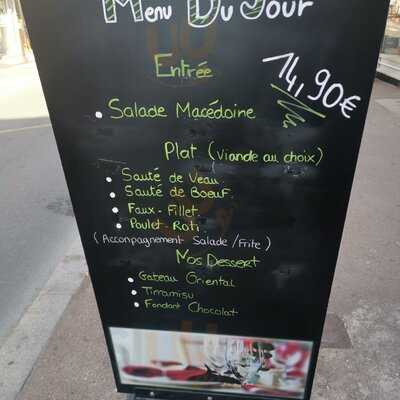 Menu Du Jour
14,90€
Entrée
Salade Macédoine
Plat (viande au choix)
Sauté de Veau
Sauté de Boeuf.
Faux-Fillet
Poulet-Roti
(Accompagnement Salade/Frite)
Nos Dessert
Gateau Oriental
Tirramisu
Fondant Chocolat